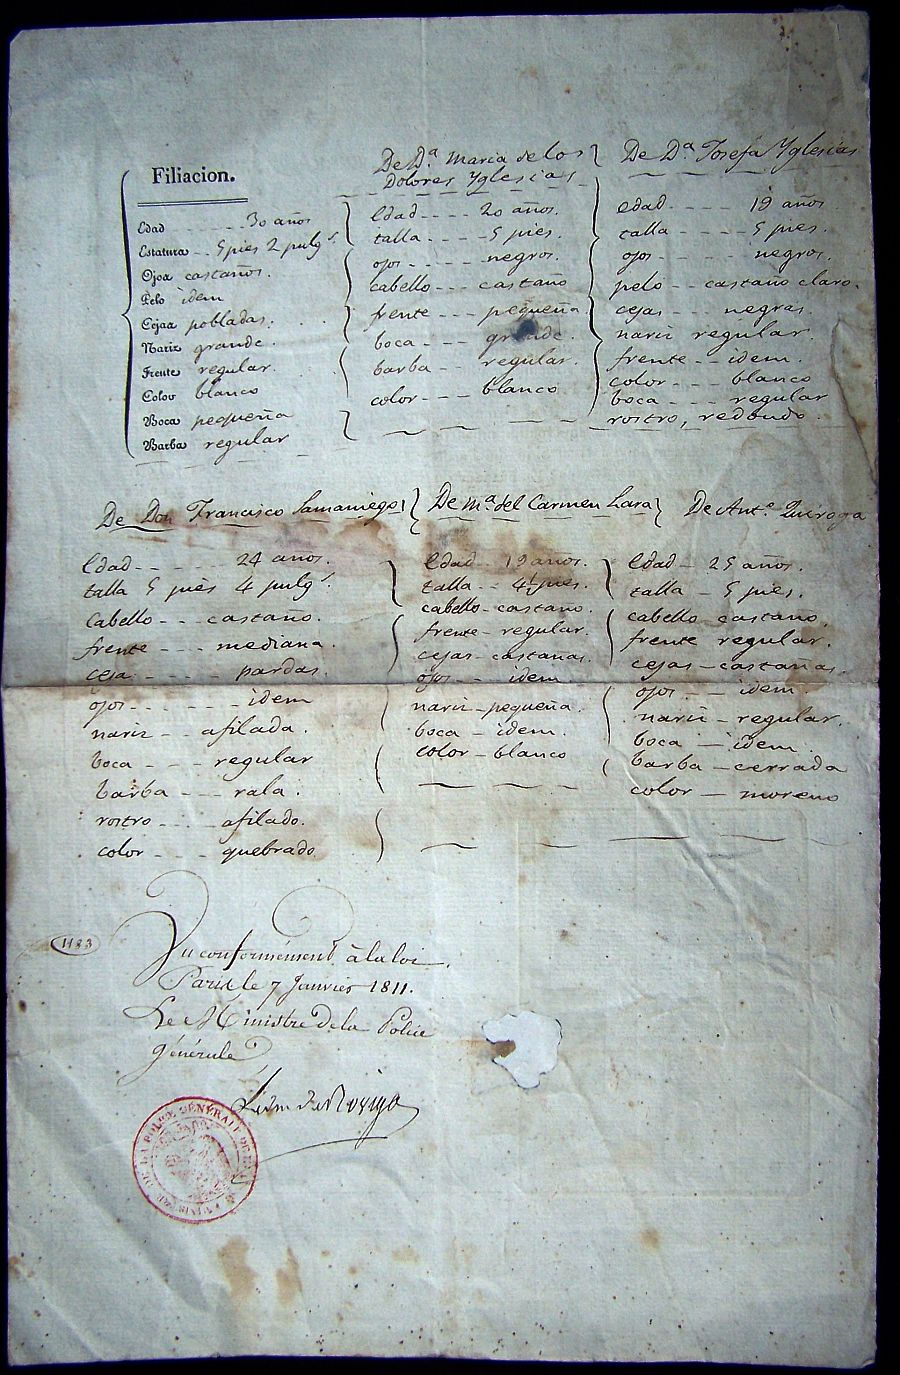 Filiacion.
Edad 30 años
Estatura 5 pies 2 pulgs.
Ojos castaños.
Pelo idem
Cejas pobladas.
Nariz grande.
Frente regular.
Color blanco
Boca pequeña
Barba regular
De Da. Maria de los
Dolores Yglesias
Edad 20 años.
talla 5 pies.
ojos negros.
cabello castaño
frente pequeña
boca grande.
barba regular.
color blanco
De Da. Josefa Yglesias
Edad 19 años
talla 5 pies.
ojos negros.
pelo castaño claro.
cejas negras.
nariz regular.
frente idem.
color blanco
boca regular
rostro, redondo.
De Don Francisco Samaniego
Edad 24 años.
talla 5 pies 4 pulgs.
cabello castaño.
frente mediana.
cejas pardas.
ojos idem
nariz afilada.
boca regular
barba rala.
rostro afilado.
color quebrado.
De Ma. del Carmen Lara
Edad 19 años.
talla 4½ pies.
cabello castaño.
frente regular.
cejas castañas.
ojos idem
nariz pequeña.
boca idem.
color blanco
De Anto. Quiroga
Edad 25 años.
talla 5 pies.
cabello castaño.
frente regular.
cejas castañas.
ojos idem.
nariz regular.
boca idem.
barba cerrada
color moreno
1183
Vu conformément à la loi.
Paris le 7 Janvier 1811.
Le Ministre de la Police
générale
DE LA POLICE GÉNÉRALE